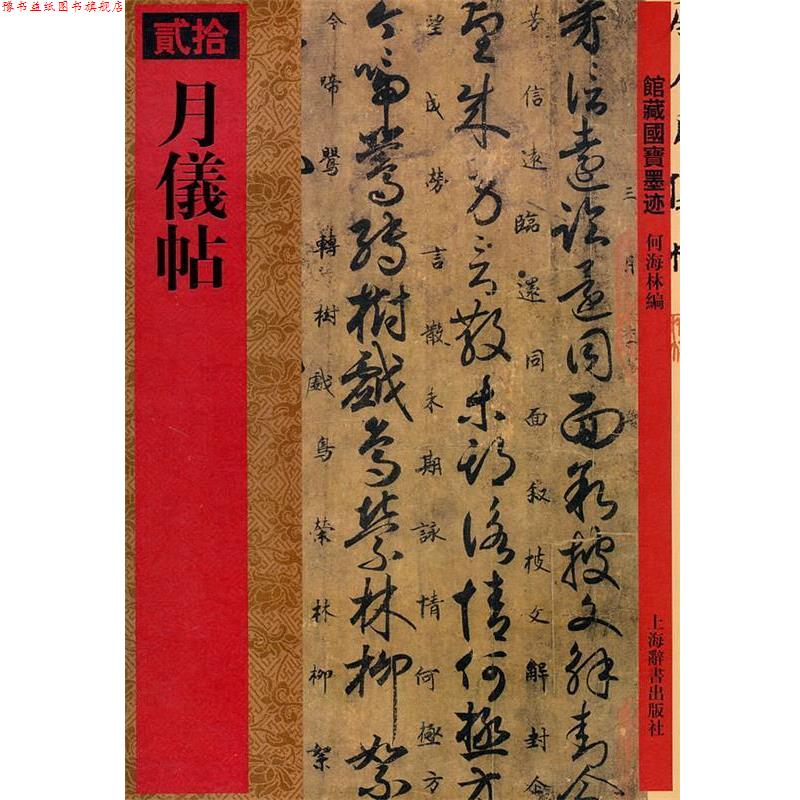 豫书益纸图书旗舰店
貳拾
月儀帖
館藏國寶墨迹
何海林編
上海辭書出版社
芳信遠臨還同面叙披文解封令
芳信遠臨還同面敘披文解封今
望成勞言散未期詠情何極方
望成勞言散未期詠情何極方
今啼鶯轉樹戲鳥縈林柳絮
今啼鶯轉樹戲鳥縈林柳絮